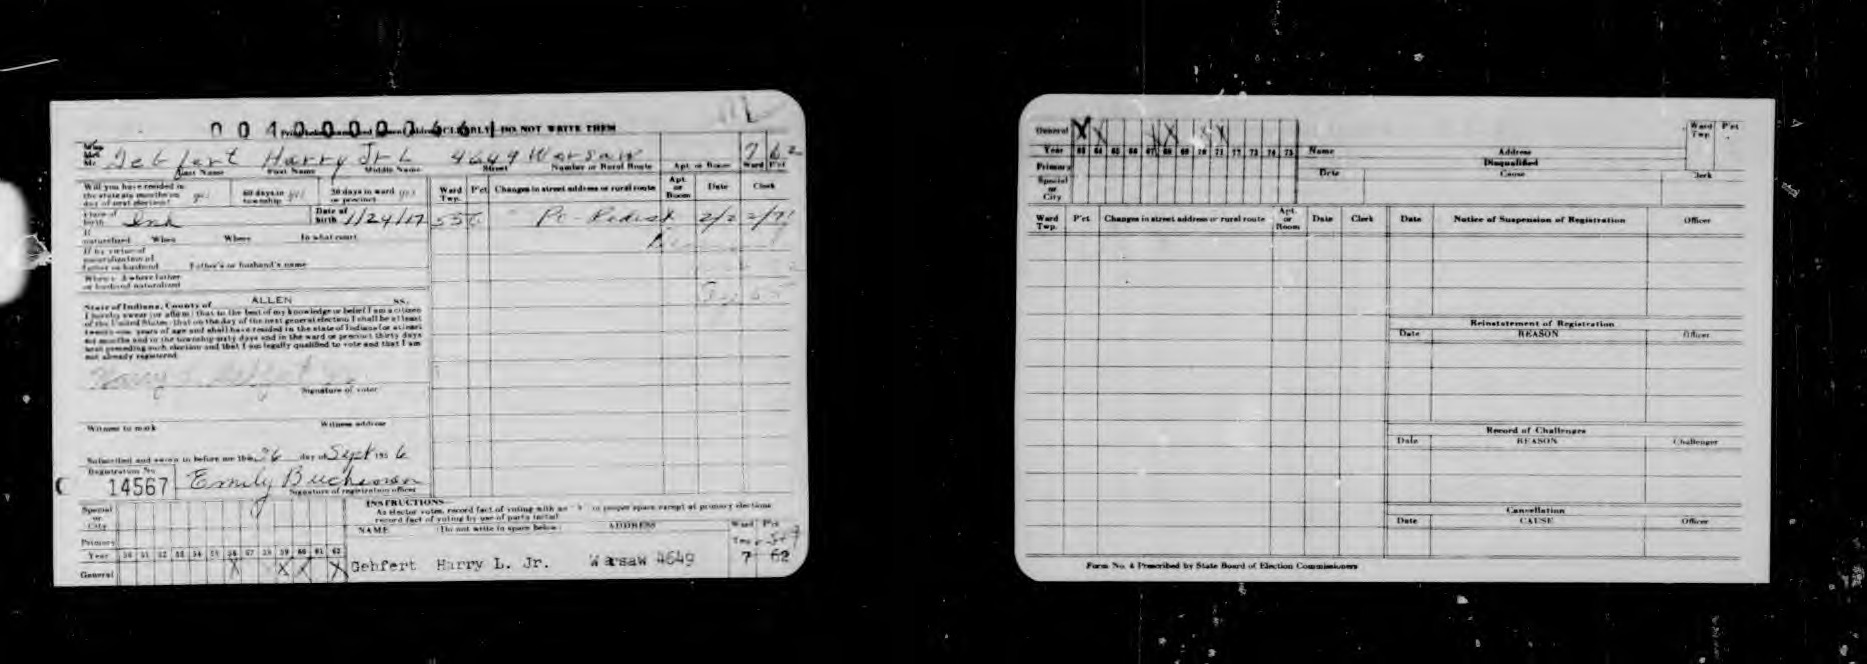 DO NOT WRITE THEM
Gebfert Harry Jr L 4649 Warsaw 7 62
Last Name First Name Middle Name Street Number or Rural Route Apt. or Room Ward P'ct
Will you have resided in the state six months on day of next election? yes 60 days in township yes 30 days in ward or precinct yes
Ward Twp. P'ct Changes in street address or rural route Apt. or Room Date Clerk
State of birth Ind Date of birth 1/24/17
If naturalized When Where In what court
If by virtue of naturalization of father or husband Father's or husband's name
State of Indiana, County of ALLEN SS.
I hereby swear (or affirm) that to the best of my knowledge or belief I am a citizen
of the United States; that on the day of the next general election I shall be at least
twenty-one years of age and shall have resided in the state of Indiana for at least
six months and in the township sixty days and in the ward or precinct thirty days
next preceding such election and that I am legally qualified to vote and that I am
not already registered.
Signature of voter
Witness to mark Witness address
Subscribed and sworn to before me this 26 day of Sept 195 6
Registration No.
C 14567 Emily Buchanan
Signature of registration officer
INSTRUCTIONS
As elector votes, record fact of voting with an "X" in proper space except at primary elections
record fact of voting by use of party initial
Special or City
Primary
NAME (Do not write in space below) ADDRESS Ward Twp P'ct
Year 50 51 52 53 54 55 56 57 58 59 60 61 62
General X X X X
Gebfert Harry L. Jr. Warsaw 4649 7 62
General
Year 63 64 65 66 67 68 69 70 71 72 73 74 75
Primary
Special or City
Name Address Ward Twp P'ct
Disqualified
Date Cause Clerk
Ward Twp. P'ct Changes in street address or rural route Apt. or Room Date Clerk Date Notice of Suspension of Registration Officer
Reinstatement of Registration
Date REASON Officer
Record of Challenges
Date REASON Challenger
Cancellation
Date CAUSE Officer
Form No. 4 Prescribed by State Board of Election Commissioners